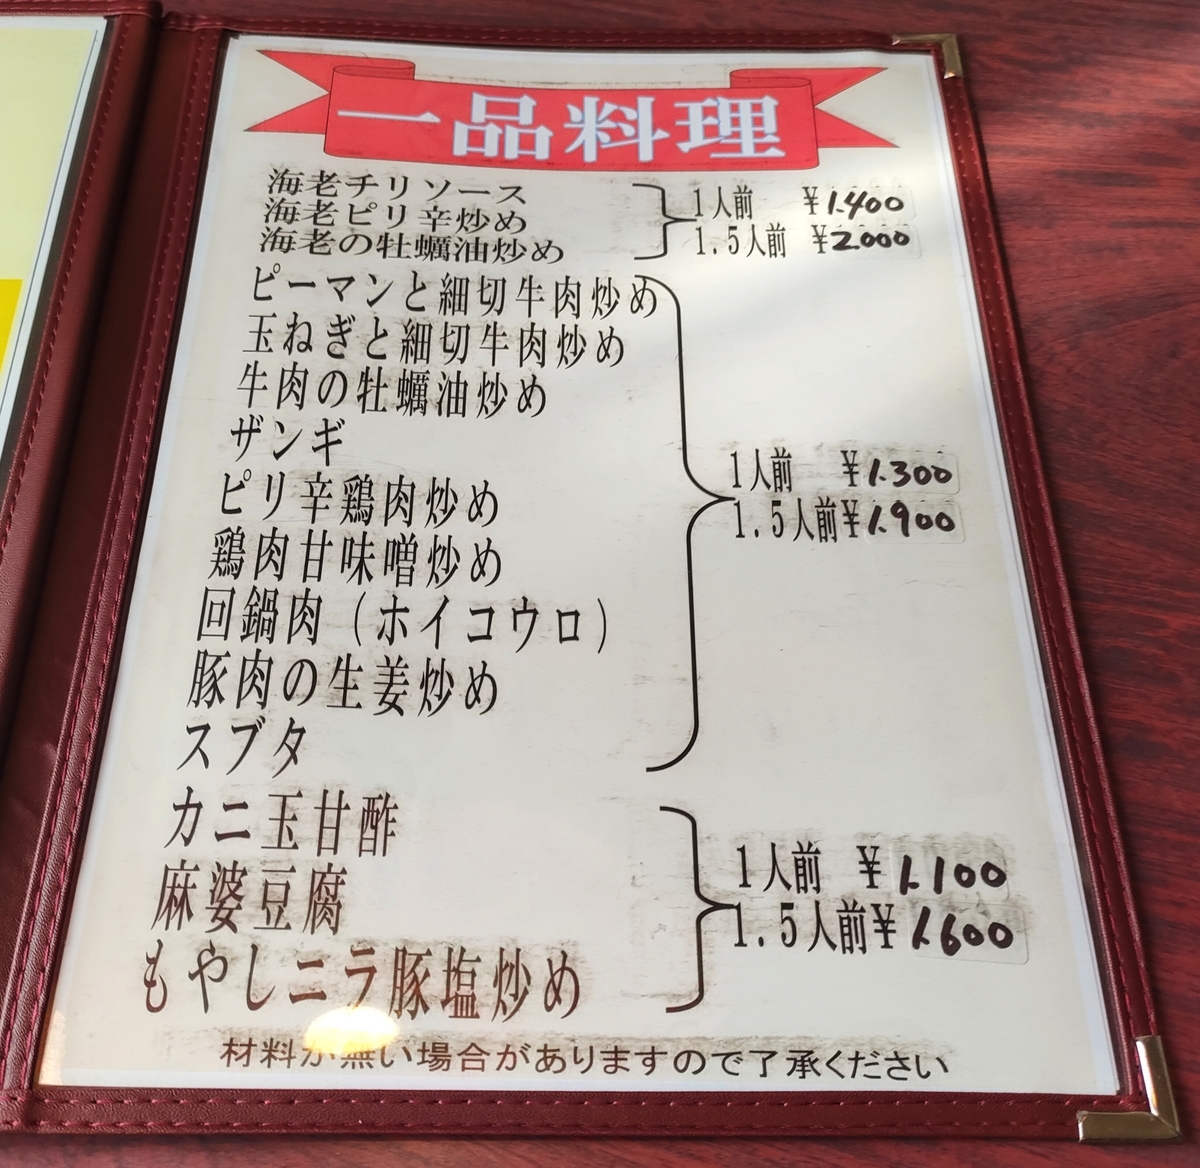 一品料理
海老チリソース
海老ピリ辛炒め
海老の牡蠣油炒め
1人前 ¥1.400
1.5人前 ¥2.000
ピーマンと細切牛肉炒め
玉ねぎと細切牛肉炒め
牛肉の牡蠣油炒め
ザンギ
ピリ辛鶏肉炒め
鶏肉甘味噌炒め
回鍋肉（ホイコウロ）
豚肉の生姜炒め
スブタ
1人前 ¥1.300
1.5人前¥1.900
カニ玉甘酢
麻婆豆腐
もやしニラ豚塩炒め
1人前 ¥1.100
1.5人前¥1.600
材料が無い場合がありますので了承ください